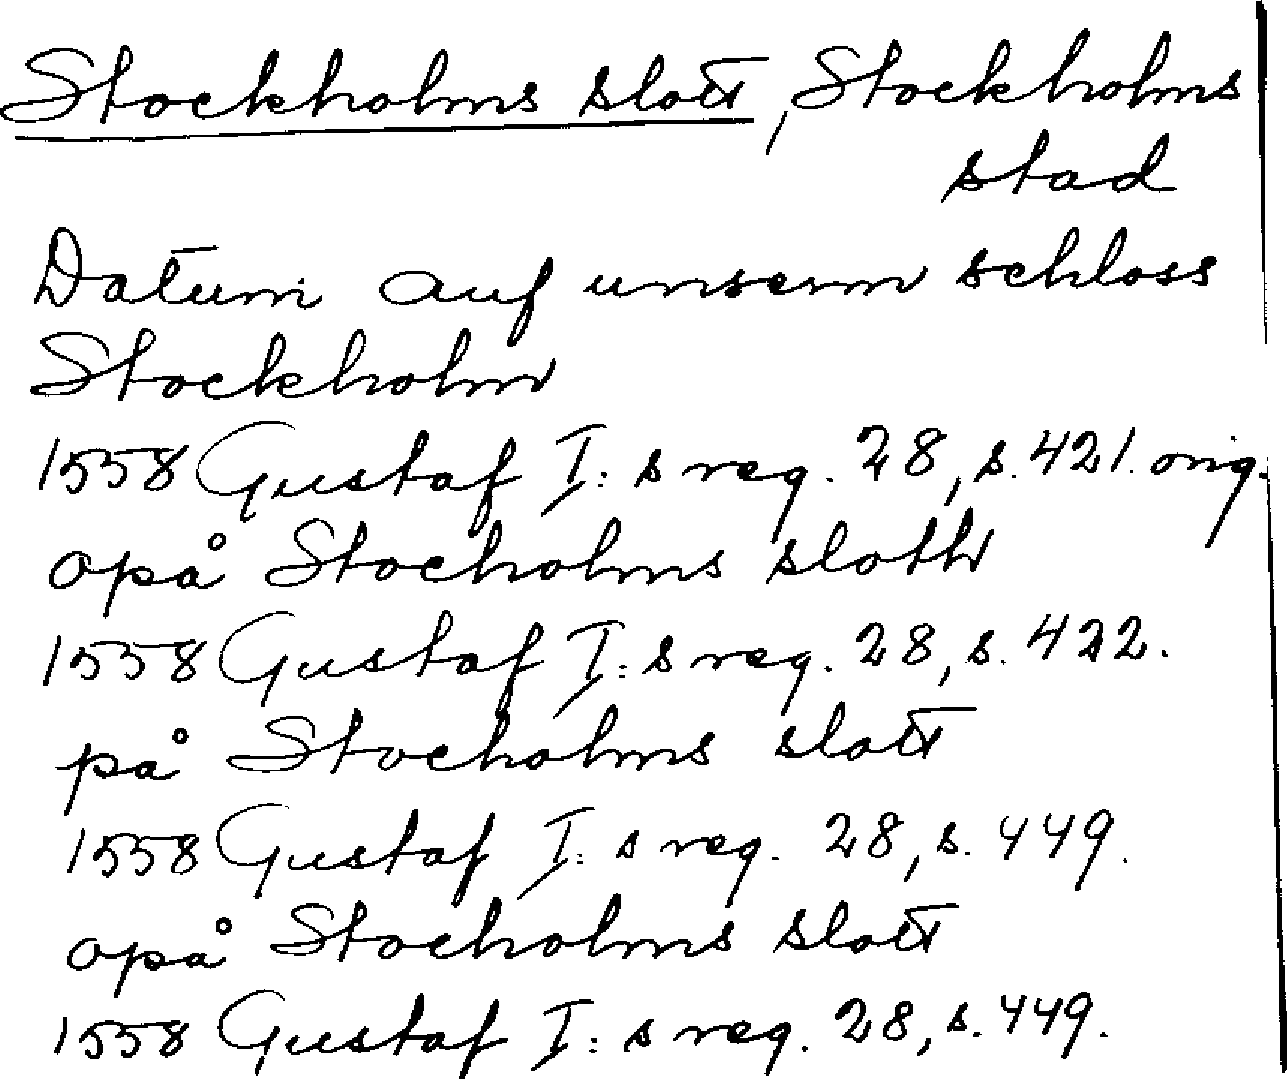 Stockholms slott, Stockholms
stad
Datum auf unserm schloss
Stockholm
1558 Gustaf I:s reg. 28, s. 421. orig.
opå Stocholms sloth
1558 Gustaf I:s reg. 28, s. 422.
på Stocholms slott
1558 Gustaf I:s reg. 28, s. 449.
opå Stocholms slott
1558 Gustaf I:s reg. 28, s. 449.